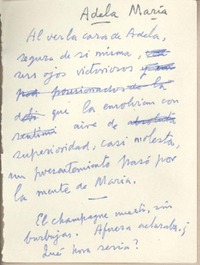 Adela María
Al ver la cara de Adela,
segura de sí misma,
sus ojos victoriosos
posesionados de la
que la envolvían con
aire de
superioridad, casi molesta,
un presentimiento pasó por
la mente de María.
El champagne murió, sin
burbujas. Afuera
Qué hora sería?